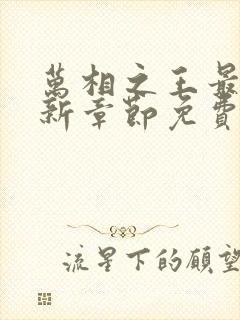 萬相之王最
新章節免費
流星下的願望